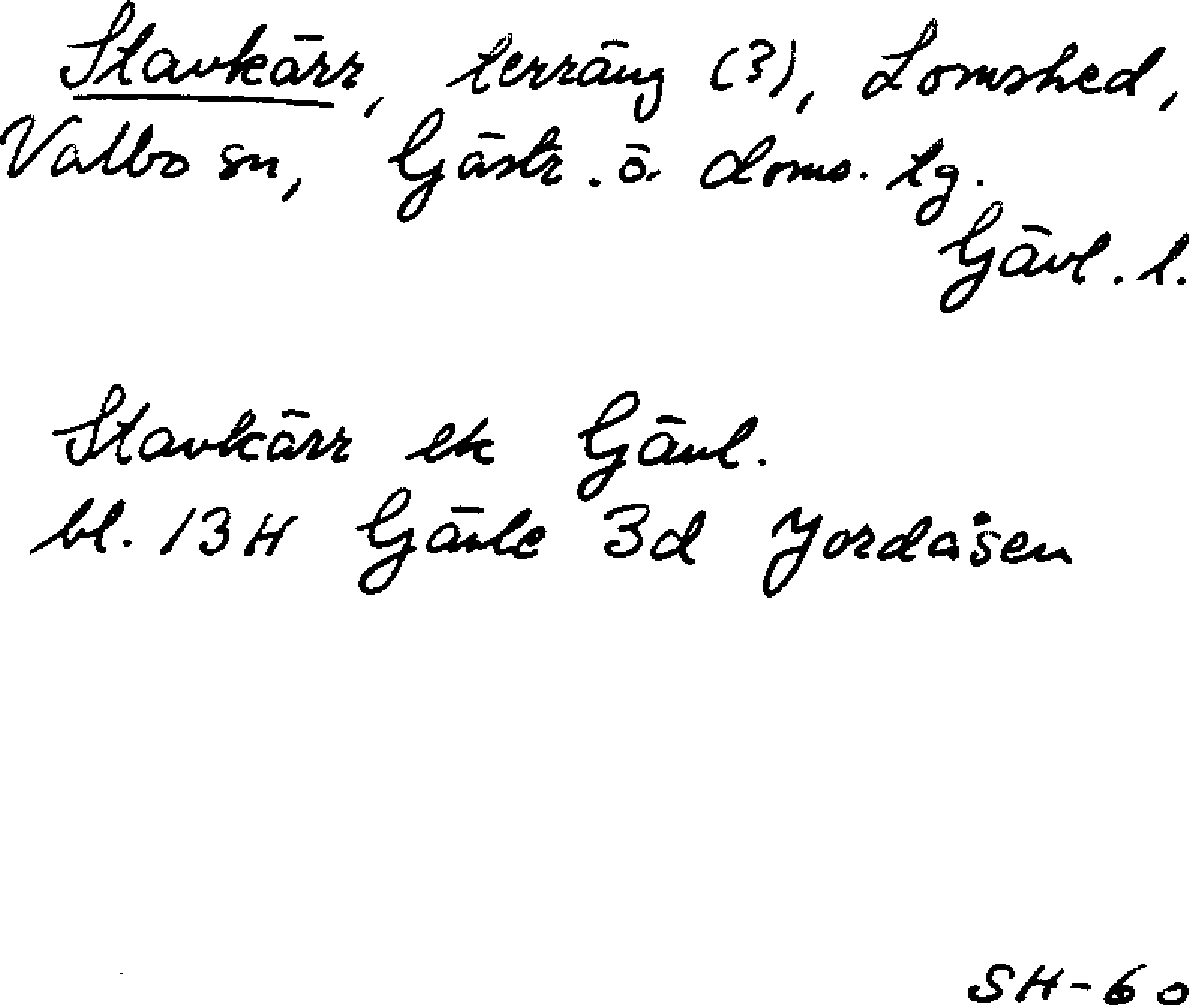 Stavkärr, terräng (3), Lomshed,
Valbo sn, Gästr. ö. doms. tg.
Gävl. l.
Stavkärr ek Gävl.
bl. 13H Gävle 3d Jordåsen
SH-60